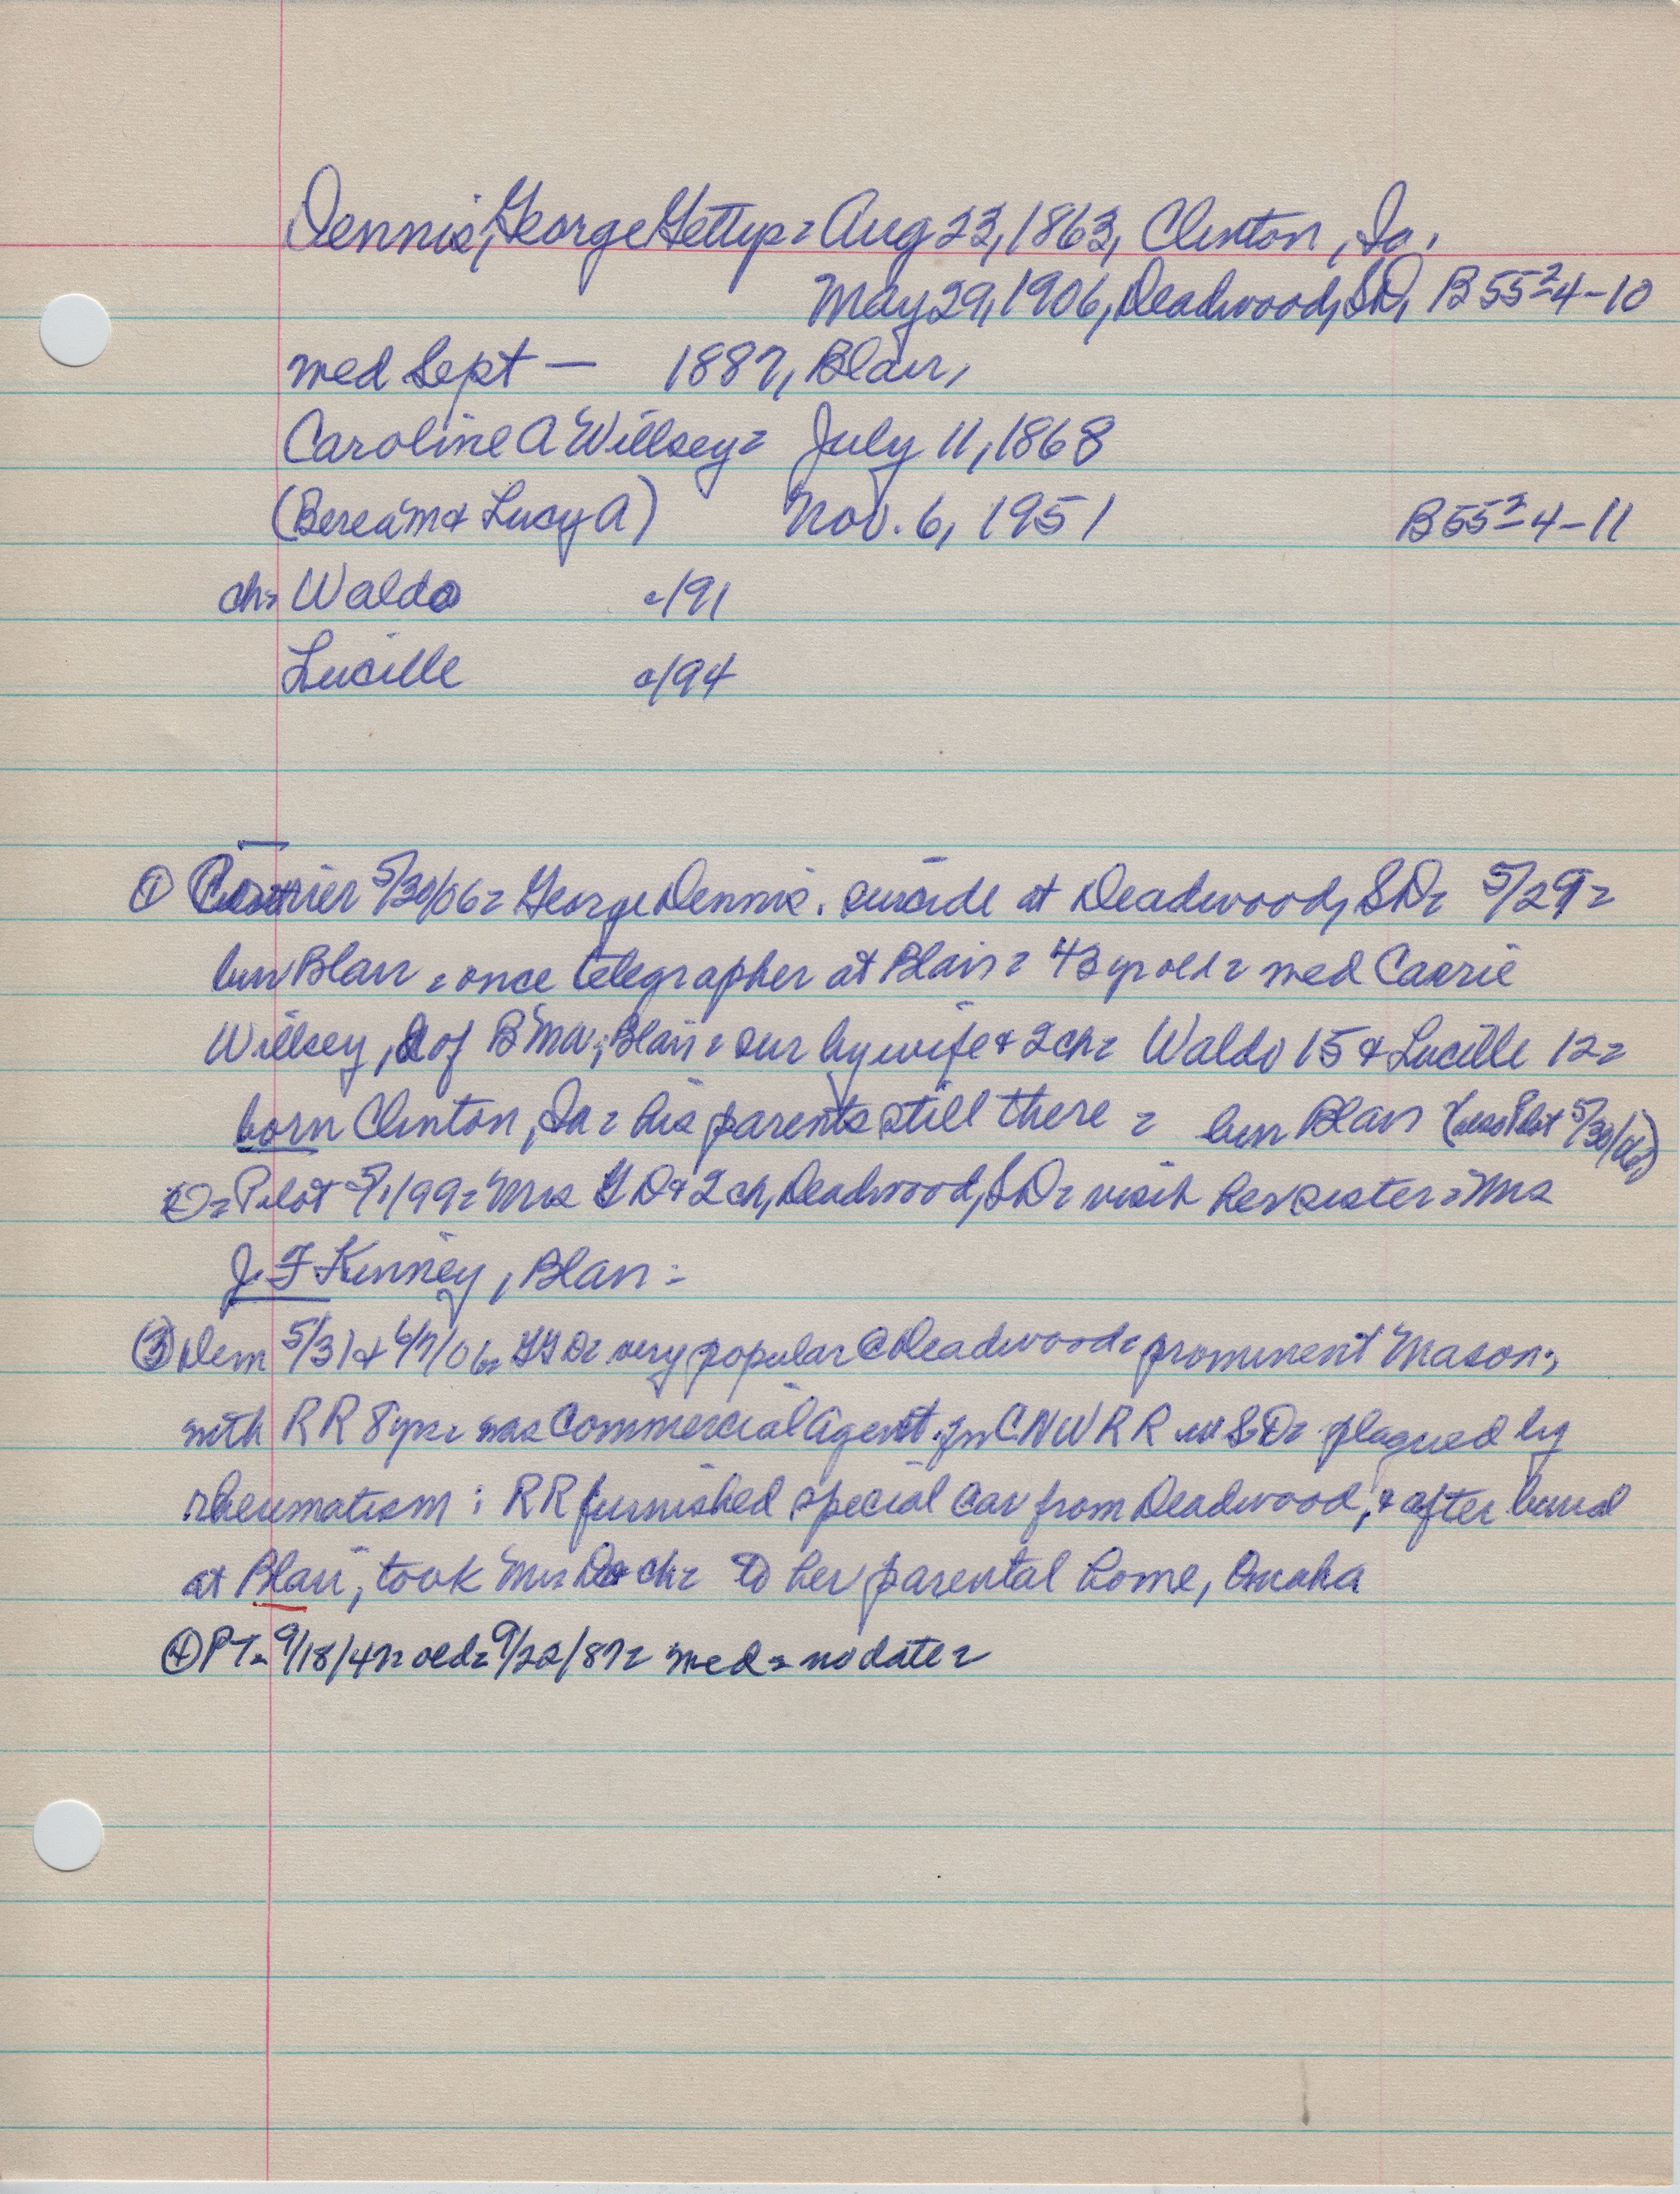 Dennis, George Gettys = Aug 23, 1863, Clinton, Ia.
May 29, 1906, Deadwood, SD, B 55²-4-10
med Sept — 1887, Blair,
Caroline A Willsey = July 11, 1868
(Berea M & Lucy A) Nov. 6, 1951 B55²-4-11
ch= Waldo c/91
Lucille c/94
① Courier 5/30/06= George Dennis. suicide at Deadwood, SD= 5/29=
bur Blair = once telegrapher at Blair = 43 yr old = med Carrie
Willsey, d of B M W, Blair = sur by wife & 2 ch= Waldo 15 & Lucille 12=
born Clinton, Ia = his parents still there = bur Blair (also Pilot 5/30/06)
②= Pilot 5/1/99= Mrs G D & 2 ch, Deadwood, SD= visit her sister = Mrs
J. F Kinney, Blair =
③ Dem 5/31 & 6/7/06= GGD= very popular @ Deadwood = prominent Mason;
with RR 8 yrs= was Commercial Agent for CNWRR in S D= plagued by
rheumatism; RR furnished special car from Deadwood, & after burial
at Blair, took Mrs D & ch= to her parental home, Omaha
④ PT= 9/18/47= old= 9/22/87= med = no date=